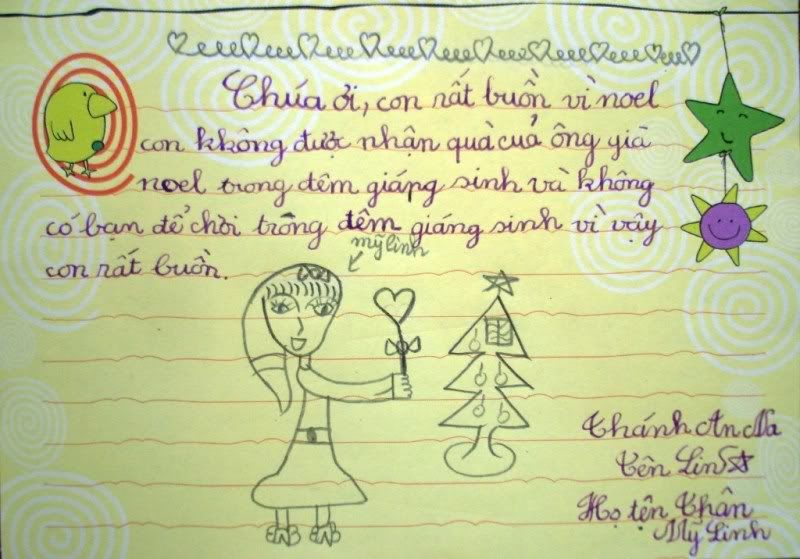 Chúa ơi, con rất buồn vì noel
con không được nhận quà cuả ông già
noel trong đêm giáng sinh và không
có bạn để chời trông đêm giáng sinh vì vậy
con rất buồn.
mỹ linh
Thánh An Na
Tên Linh
Họ tên Thân
Mỹ Linh